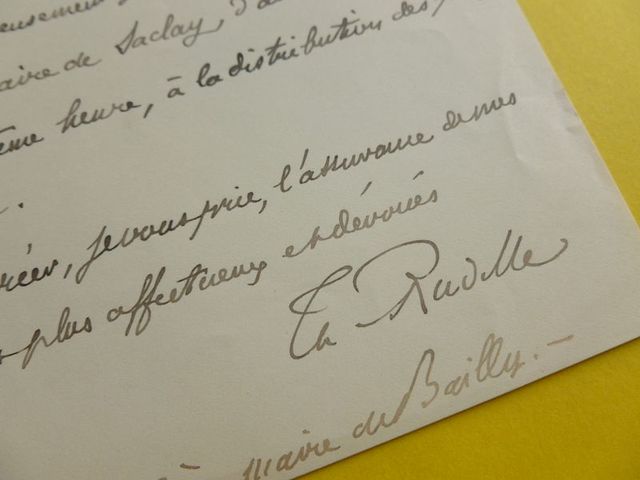 eusement
aire de Saclay, d'a
ême heure, à la distribution des
réer, je vous prie, l'assurance de mes
plus affectueux et dévoués
Th Rudlle
maire de Bailly. -